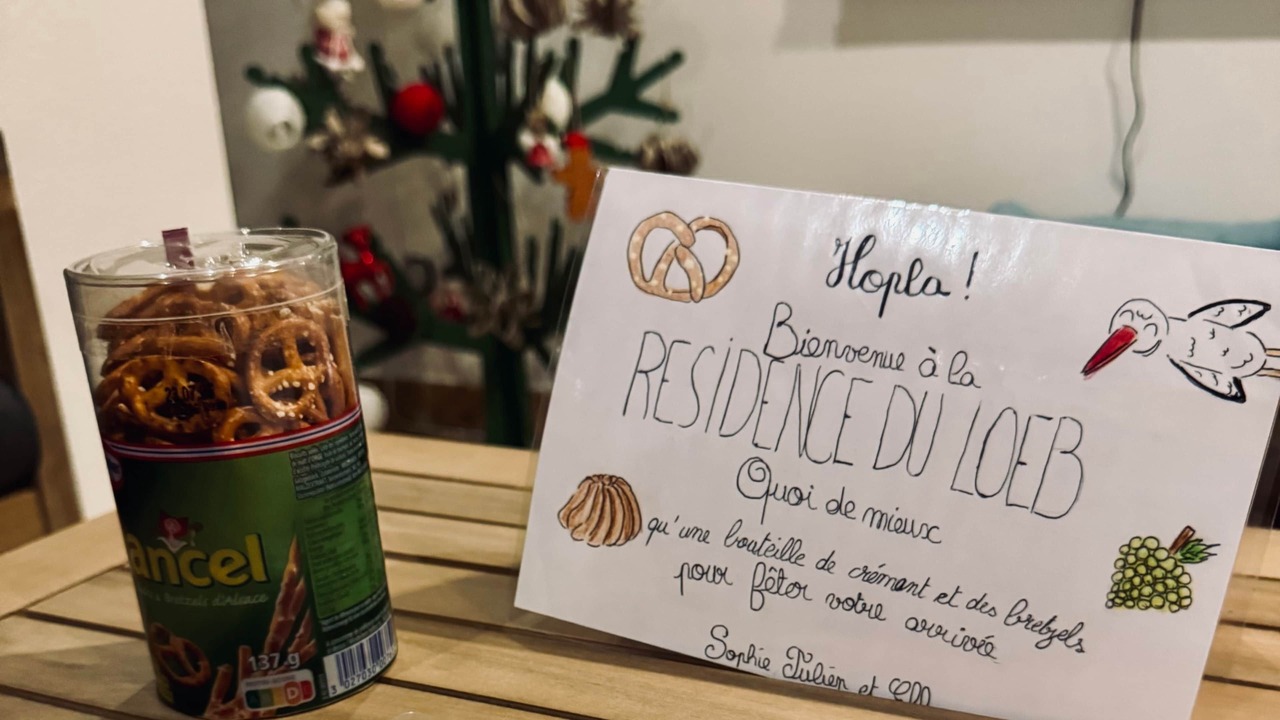 Hopla !
Bienvenue à la
RESIDENCE DU LOEB
Quoi de mieux
qu'une bouteille de crémant et des bretzels
pour fêter votre arrivée
Sophie Julien et
ancel
& Bretzels d'Alsace
137 g